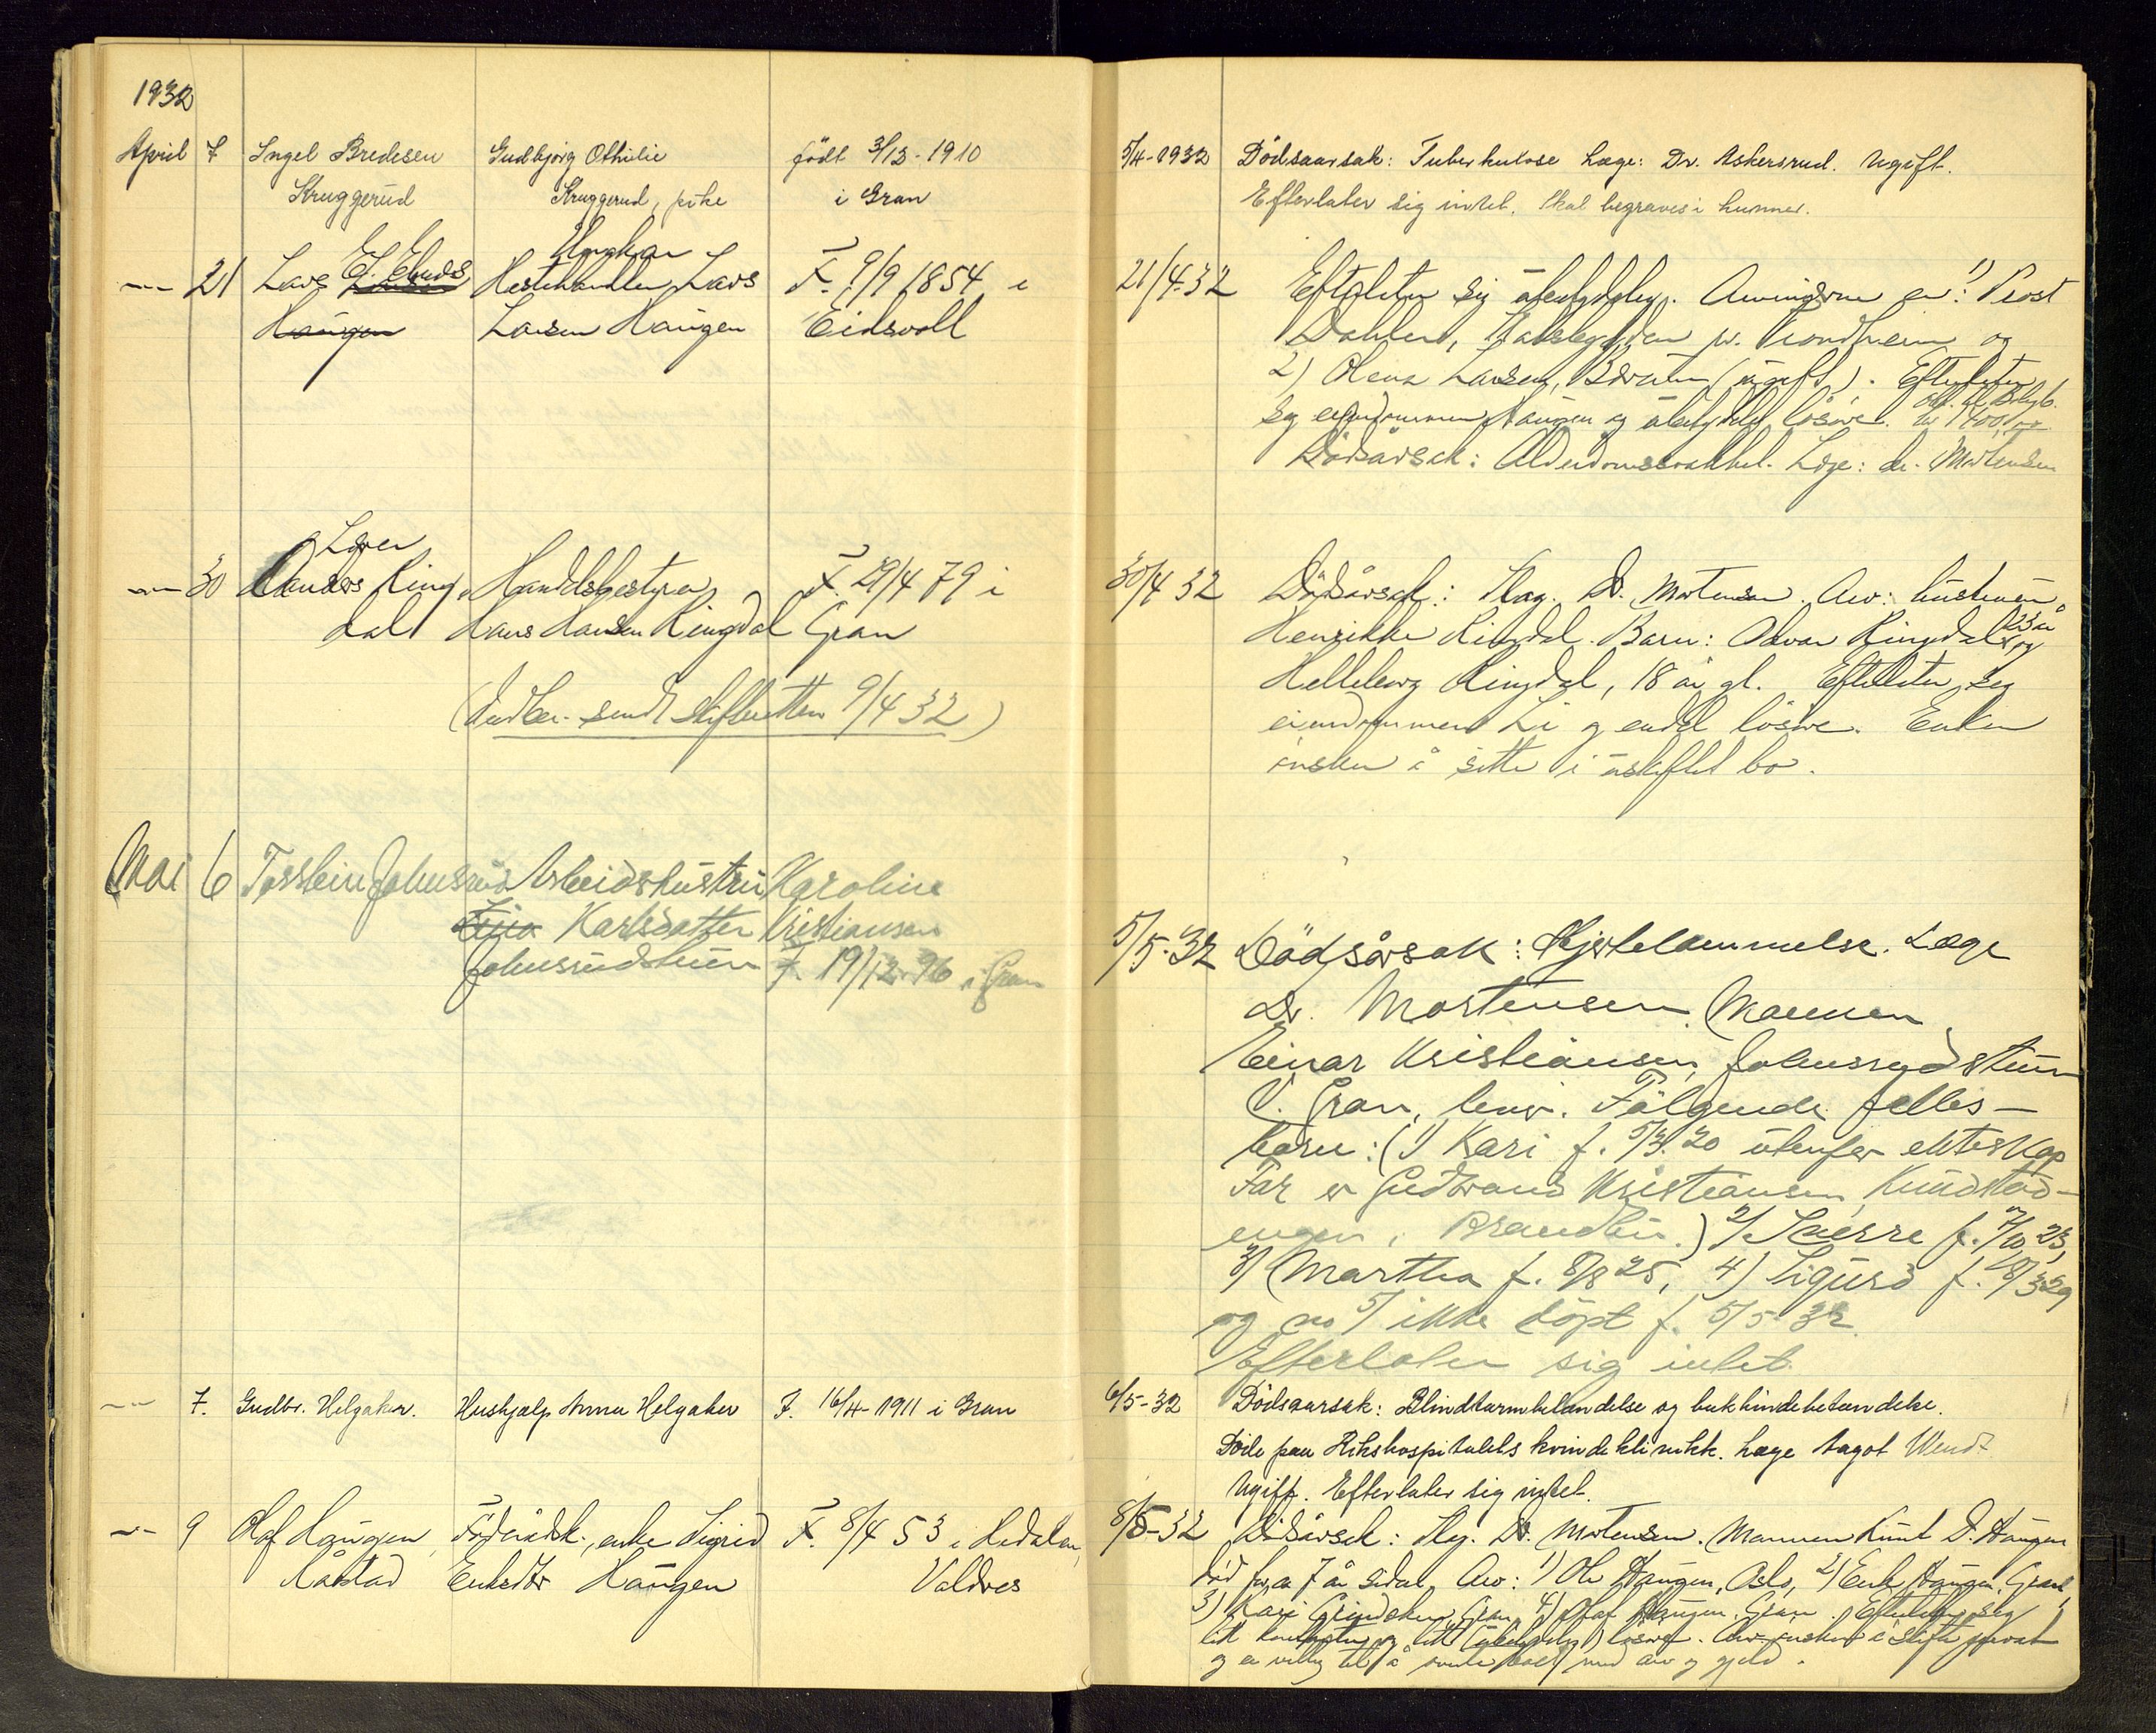 1932
April 7 Ingel Bredesen Gudbjørg Othilie født 3/12-1910
Kruggerud Kruggerud, pike i Gran
Ungkar
21 Lars E. Hestehandler Lars F. 9/9 1854 i
Haugen Larsen Haugen Eidsvoll
30 Anders Ring- Handelsbestyrer F. 29/4 79 i
dal Hans Hansen Ringdal Gran
(Indber. sendt skifteretten 9/4 32)
Mai 6 Torstein Johnsrud Arbeidshustru Karoline
Karlsdatter Kristiansen
Johnsrudstuen F. 19/12-96 i Gran
7. Gudbr. Helgaker. Hushjælp Anna Helgaker F. 16/4-1911 i Gran
9 Olaf Haugen, Føderådsk., enke Sigrid F. 8/4 53 i Hedalen,
Råstad Eriksdtr Haugen Valdres
5/4-1932 Dödsaarsak: Tuberkulose Læge: Dr. Askersrud. Ugift.
Efterlater sig intet. Skal begraves i Lunner.
21/4-32 Efterlater sig ubetydelig. Arvingene er: 1) Prost
Dahlen, Stadsbygden pr. Trondheim og
2) Olena Larsen, (ugift). Efterlater
sig eiendommen Haugen og ubetydelig løsøre.
Dødsårsak: Alderdomssvakhet. Læge: dr. Mortensen
30/4 32 Dødsårsak: Slag. Dr. Mortensen. Arv: hustruen
Henrikke Ringdal. Barn: Odvar Ringdal 23 år og
Ringdal, 18 år gl. Efterlater sig
eiendommen Li og endel løsøre. Enken
ønsker å sitte i uskiftet bo.
5/5-32 Dødsårsak: Hjertelammelse. Læge
Dr. Mortensen. Mannen
Einar Kristiansen, Johnsrudstuen
V. Gran, lever. Følgende felles-
barn: (1) Kari f. 5/3.20 utenfor ekteskap
Far er Gudbrand Kristiansen, Rundstad-
engen, Brandbu.) 2/ Sverre f. 7/10 23,
3) Martha f. 8/8 25, 4) Sigurd f. 28/3 29
og no 5/ ikke döpt f. 5/5 32.
Efterlater sig intet.
6/5-32 Dödsaarsak: Blindtarmbetændelse og bukhindebetændelse.
Döde paa Rikshospitalets kvindeklinikk. Læge Aagot Wendt
Ugift. Efterlater sig intet.
8/5-32 Dødsårsak: Slag. Dr. Mortensen. Mannen Knut D. Haugen
død for ca 7 år siden. Arv: 1) Ole Haugen, Oslo, 2) Erik Haugen, Gran,
3) Kari Grindaker, Gran, 4) Olaf Haugen, Gran. Efterlater sig
litt og litt (ubetydelig) løsøre. Arv. ønsker å skifte privat
og er villig til å overta boet med arv og gjeld.